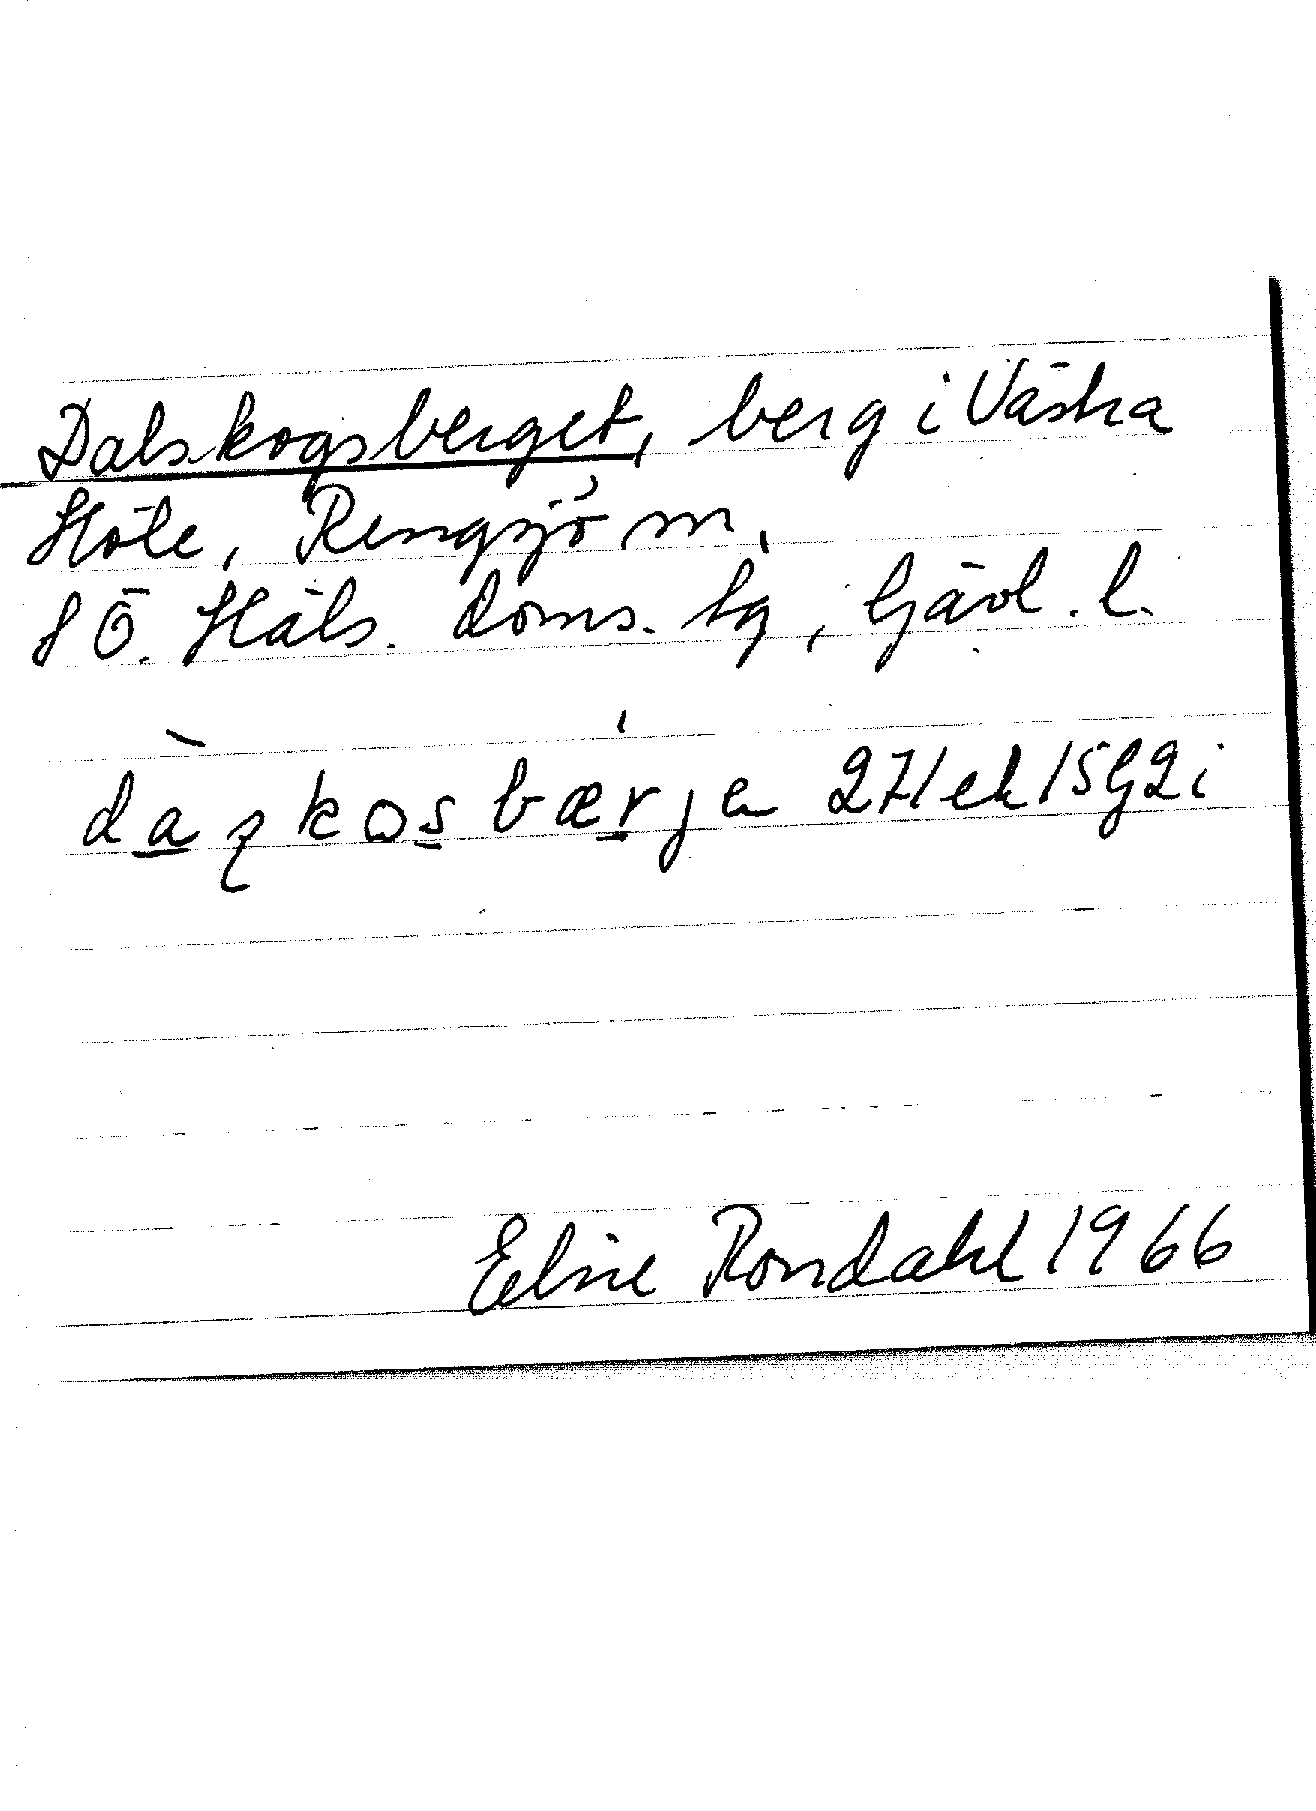 Dalskogsberget, berg i Västra
Höle, Rengsjö sn,
SÖ. Häls. doms. sg, Gävl. l.
dazkosbærjen 271 ek 15G2i
Elsie Rondahl 1966